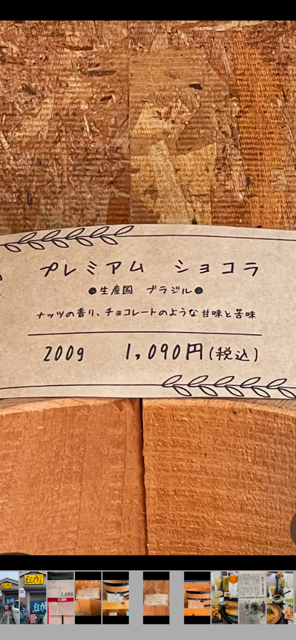 プレミアム ショコラ
●生産国 ブラジル●
ナッツの香り、チョコレートのような甘味と苦味
200g 1,090円(税込)